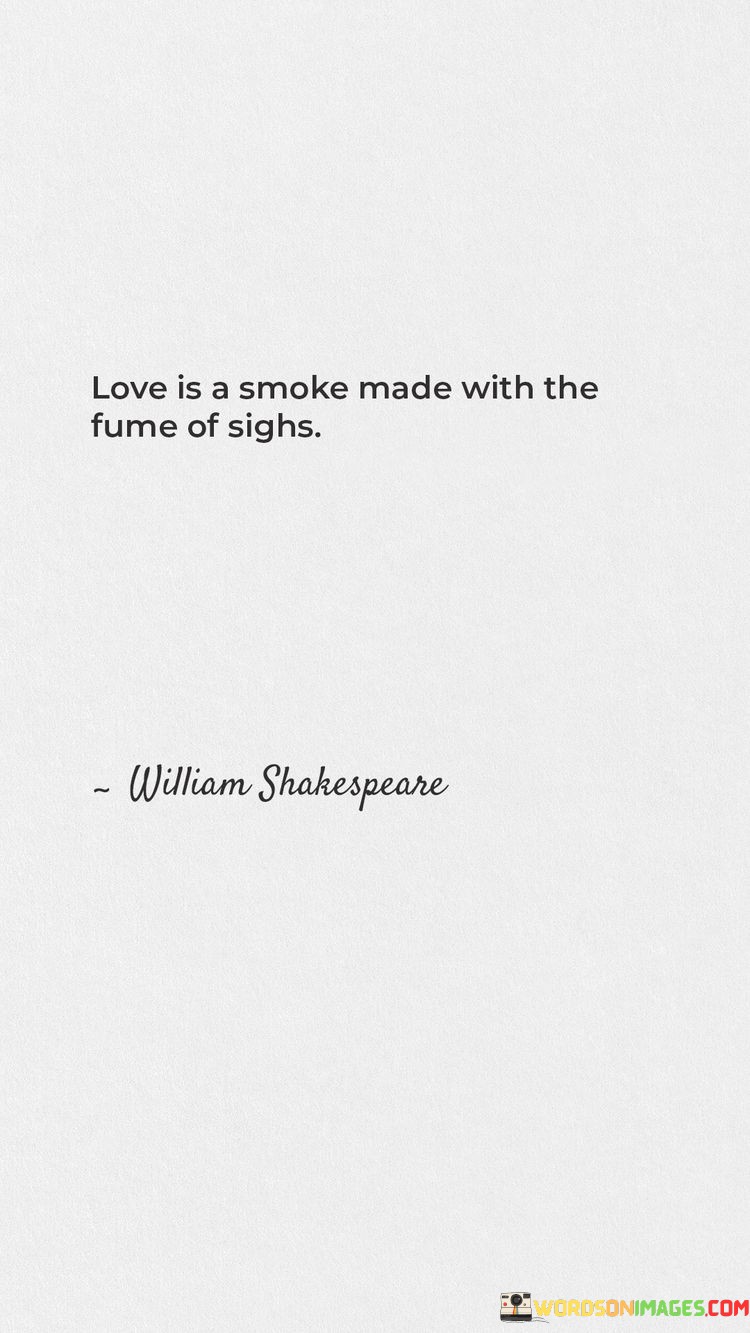 Love is a smoke made with the
fume of sighs.
~ William Shakespeare
WORDSONIMAGES.COM